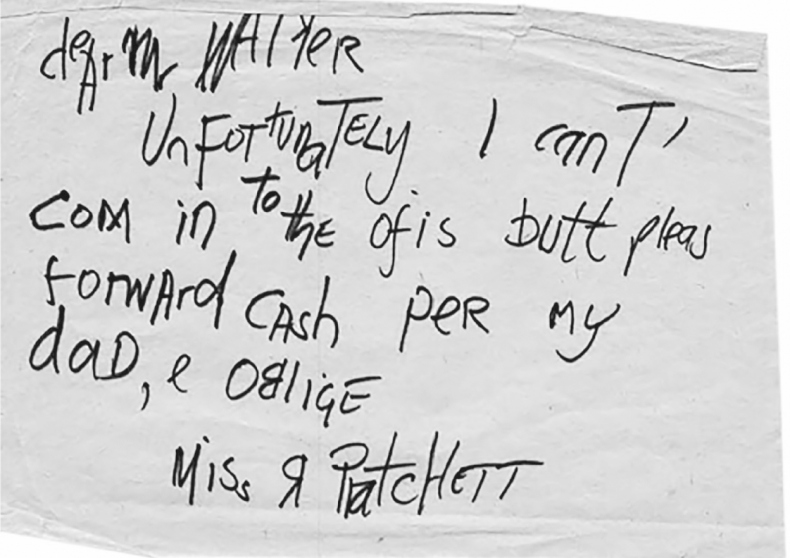 deAr Mr WAlTeR
UnFOrTunaTELy I canT'
COM in to the ofis butt pleas
FORWArd CAsh PER MY
daD, e OBliGE
Miss R PratCHETT